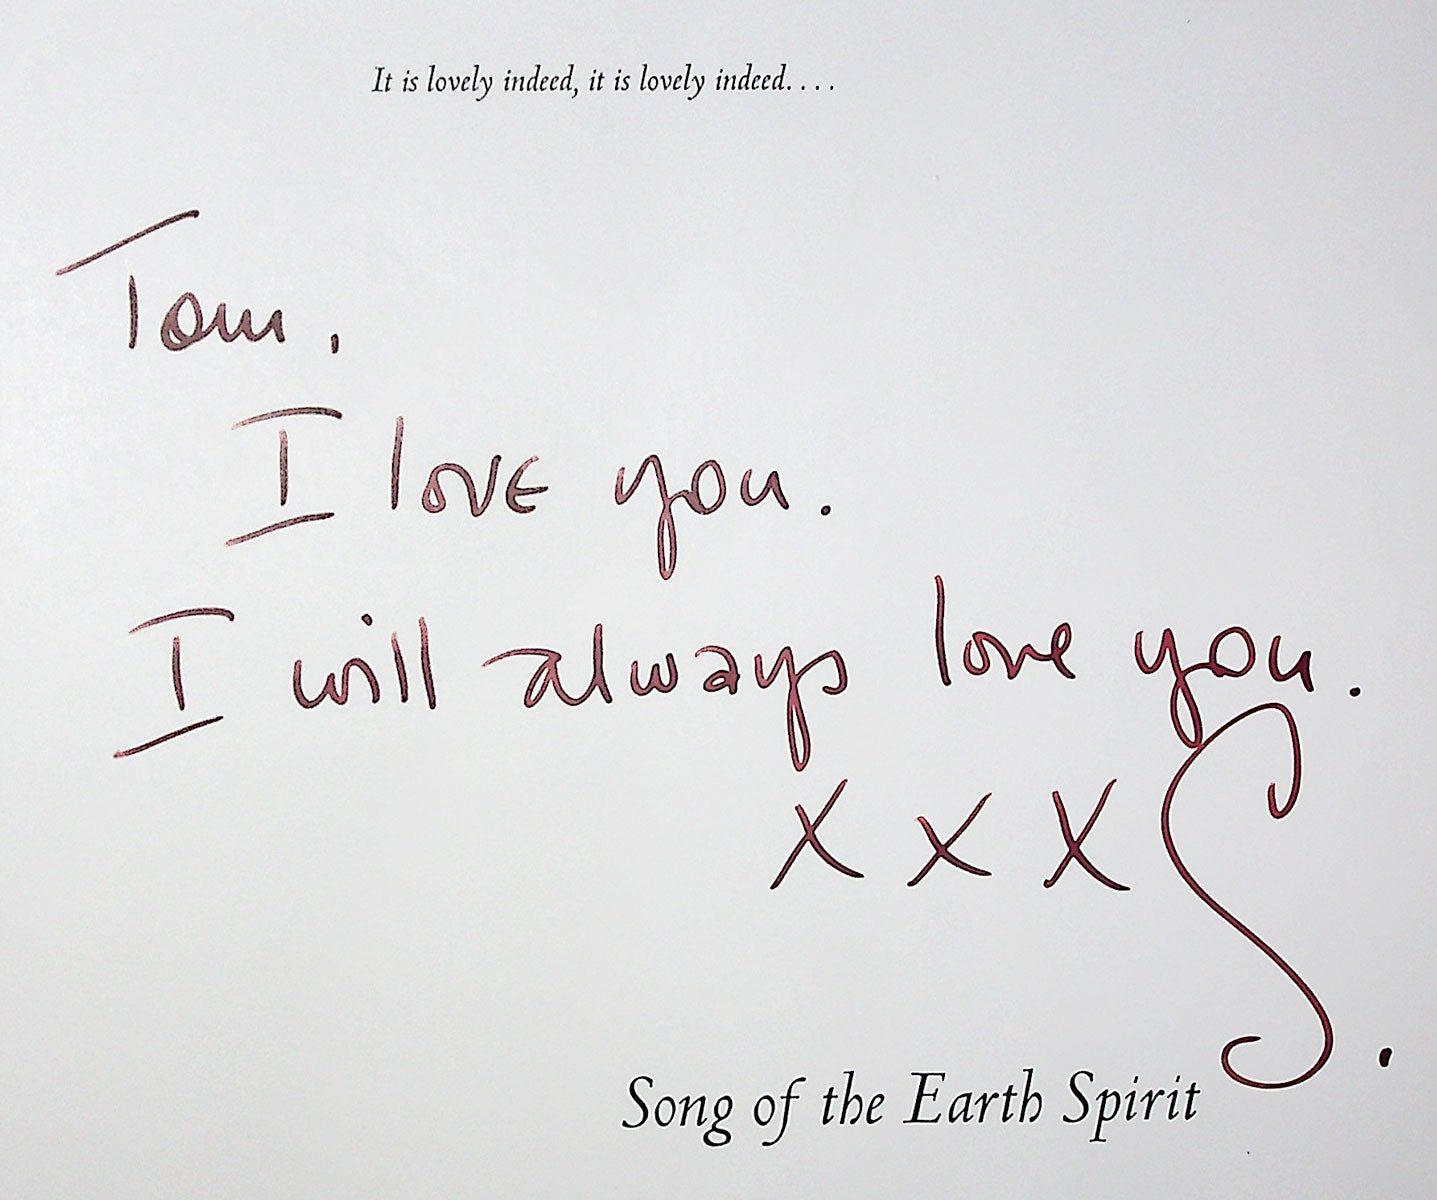 It is lovely indeed, it is lovely indeed....
Tom.
I love you.
I will always love you.
x x x S.
Song of the Earth Spirit